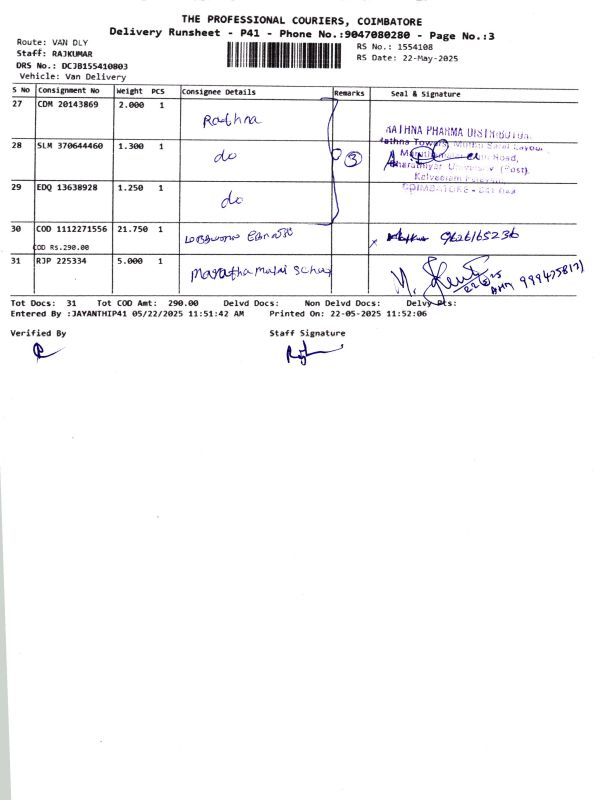 THE PROFESSIONAL COURIERS, COIMBATORE
Delivery Runsheet - P41 - Phone No.:9047080280 - Page No.:3
Route: VAN DLY
Staff: RAJKUMAR
DRS No.: DCJB155410803
Vehicle: Van Delivery
RS No.: 1554108
RS Date: 22-May-2025
S No Consignment No Weight PCS Consignee Details Remarks Seal & Signature
27 CDM 20143869 2.000 1 Rathna
28 SLM 370644460 1.300 1 do 3
29 EDQ 13638928 1.250 1 do
RATHNA PHARMA DISTRIBUTOR
Road,
Bharathiyar University (Post),
COIMBATORE
30 COD 1112271556 21.750 1
COD RS.290.00
9626165236
31 RJP 225334 5.000 1
Tot Docs: 31 Tot COD Amt: 290.00 Delvd Docs: Non Delvd Docs: Delvy Pts:
Entered By :JAYANTHIP41 05/22/2025 11:51:42 AM Printed On: 22-05-2025 11:52:06
Verified By Staff Signature